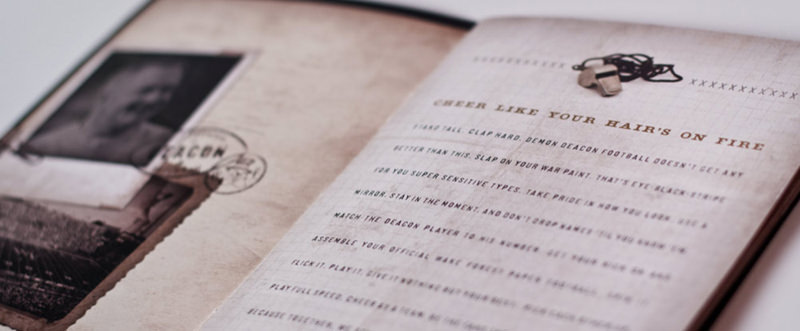 DEACON
XXXXXXXXXXX
CHEER LIKE YOUR HAIR'S ON FIRE
STAND TALL. CLAP HARD. DEMON DEACON FOOTBALL DOESN'T GET ANY
BETTER THAN THIS. SLAP ON YOUR WAR PAINT. THAT'S EYE-BLACK-STRIPE
FOR YOU SUPER SENSITIVE TYPES. TAKE PRIDE IN HOW YOU LOOK. USE A
MIRROR. STAY IN THE MOMENT. AND DON'T DROP NAMES 'TIL YOU KNOW 'EM.
MATCH THE DEACON PLAYER TO HIS NUMBER. GET YOUR
ASSEMBLE YOUR OFFICIAL WAKE FOREST PAPER FOOTBALL.
FLICK IT. PLAY IT. GIVE IT NOTHING BUT YOUR BEST.
PLAY FULL SPEED. CHEER AS A TEAM.
BECAUSE TOGETHER, WE